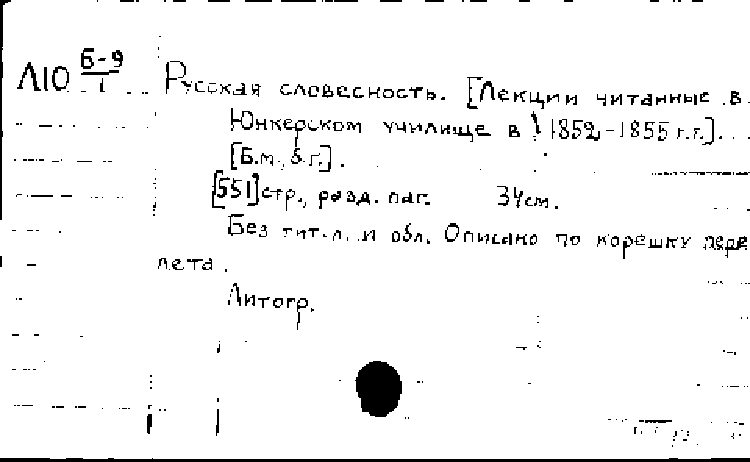 Л10 Б-9/1 Русская словесность. [Лекции читанные в
Юнкерском училище в 1852-1855 г.г.].
[Б.м., б.г.].
[551] стр., разд. паг. 34 см.
Без тит. л. и обл. Описано по корешку пере
лета.
Литогр.